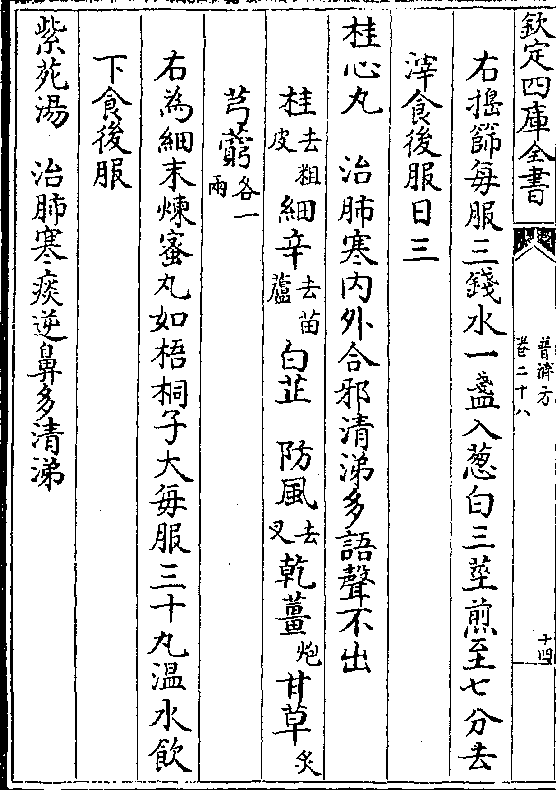 欽定四庫全書
普濟方
卷二十八
十四
右搗篩每服三錢水一盞入葱白三莖煎至七分去
滓食後服日三
桂心丸　治肺寒内外合邪清涕多語聲不出
桂去粗皮細辛去苗蘆白芷　防風去叉乾薑炮甘草炙
芎藭各一兩
右為細末煉蜜丸如梧桐子大每服三十丸温水飲
下食後服
紫苑湯　治肺寒痰逆鼻多清涕